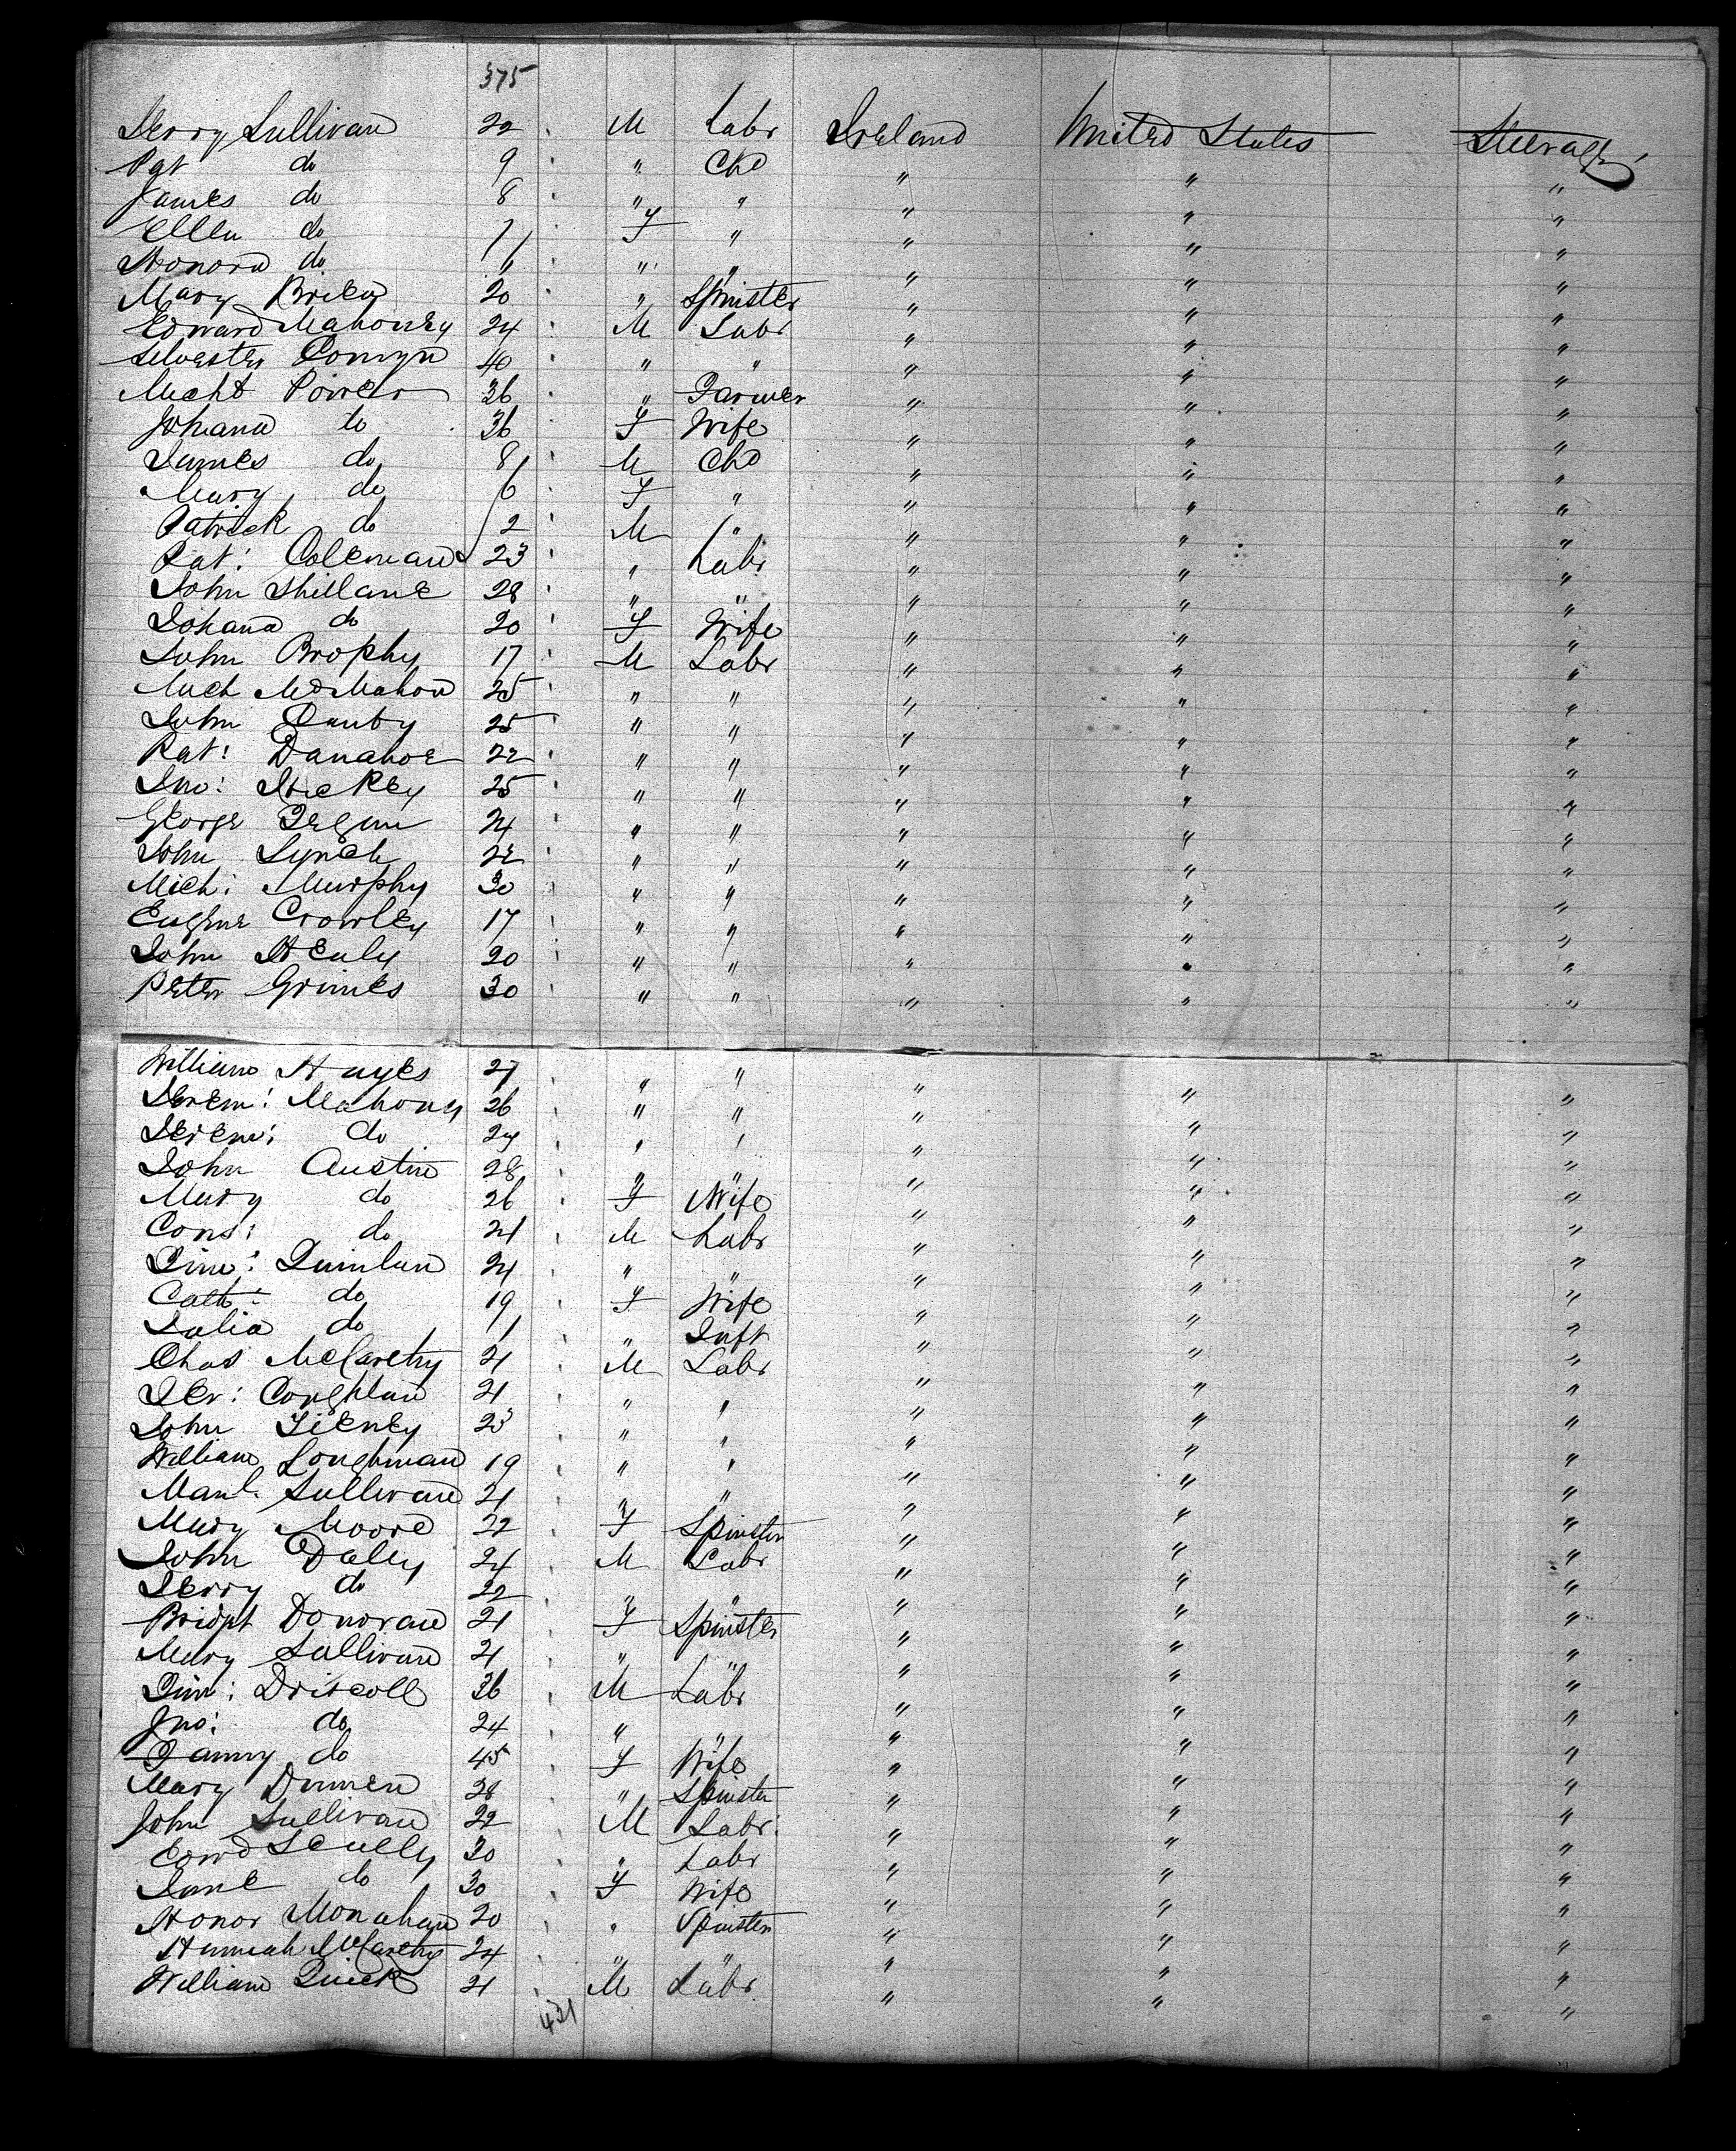 375
Jerry Sullivan 22 M Labr Ireland United States Steerage
Pat do 9 " Chd " " "
James do 8 " " " " "
Ellen do 7 F " " " "
Honora do " " " " "
Mary Brien 20 " Spinster " " "
Edward Mahoney 24 M Labr " " "
Silvester Comyn 40 " " " " "
Michl Power 36 " Farmer " " "
Johana do 36 F Wife " " "
James do 8 M Chd " " "
Mary do 6 F " " " "
Patrick do 2 M " " " "
Pat: Coleman 23 " Labr " " "
John Shillane 28 " " " " "
Johana do 20 F Wife " " "
John Brophy 17 M Labr " " "
Mich McMahon 25 " " " " "
John Canty 25 " " " " "
Pat: Danahoe 22 " " " " "
Jno: Hickey 25 " " " " "
George 24 " " " " "
John Lynch 22 " " " " "
Mich: Murphy 30 " " " " "
Eugene Crowley 17 " " " " "
John Healy 20 " " " " "
Peter Grimes 30 " " " " "
William Hayes 27 " " " " "
Jerem: Mahony 26 " " " " "
Jerem: do 24 " " " " "
John Austin 28 " " " " "
Mary do 26 F Wife " " "
Cons: do 21 M Labr " " "
Tim: Quinlan 24 " " " " "
Cath: do 19 F Wife " " "
Julia do 1 " Inft " " "
Chas McCarthy 21 M Labr " " "
Jer: Coughlan 21 " " " " "
John Tierney 23 " " " " "
William Loughman 19 " " " " "
Sullivan 21 " " " " "
Mary Moore 22 F Spinster " " "
John Daley 24 M Labr " " "
Jerry do 22 " " " " "
Bridgt Donovan 21 F Spinster " " "
Mary Sullivan 21 " " " " "
Tim: Driscoll 36 M Labr " " "
Jno: do 24 " " " " "
Fanny do 45 F Wife " " "
Mary 28 " Spinster " " "
John Sullivan 22 M Labr. " " "
Edwd Scully 30 " Labr " " "
Jane do 30 F Wife " " "
Honor Monahan 20 " Spinster " " "
Hannah McCarthy 24 " " " " "
William Quick 21 M Labr " " "
431